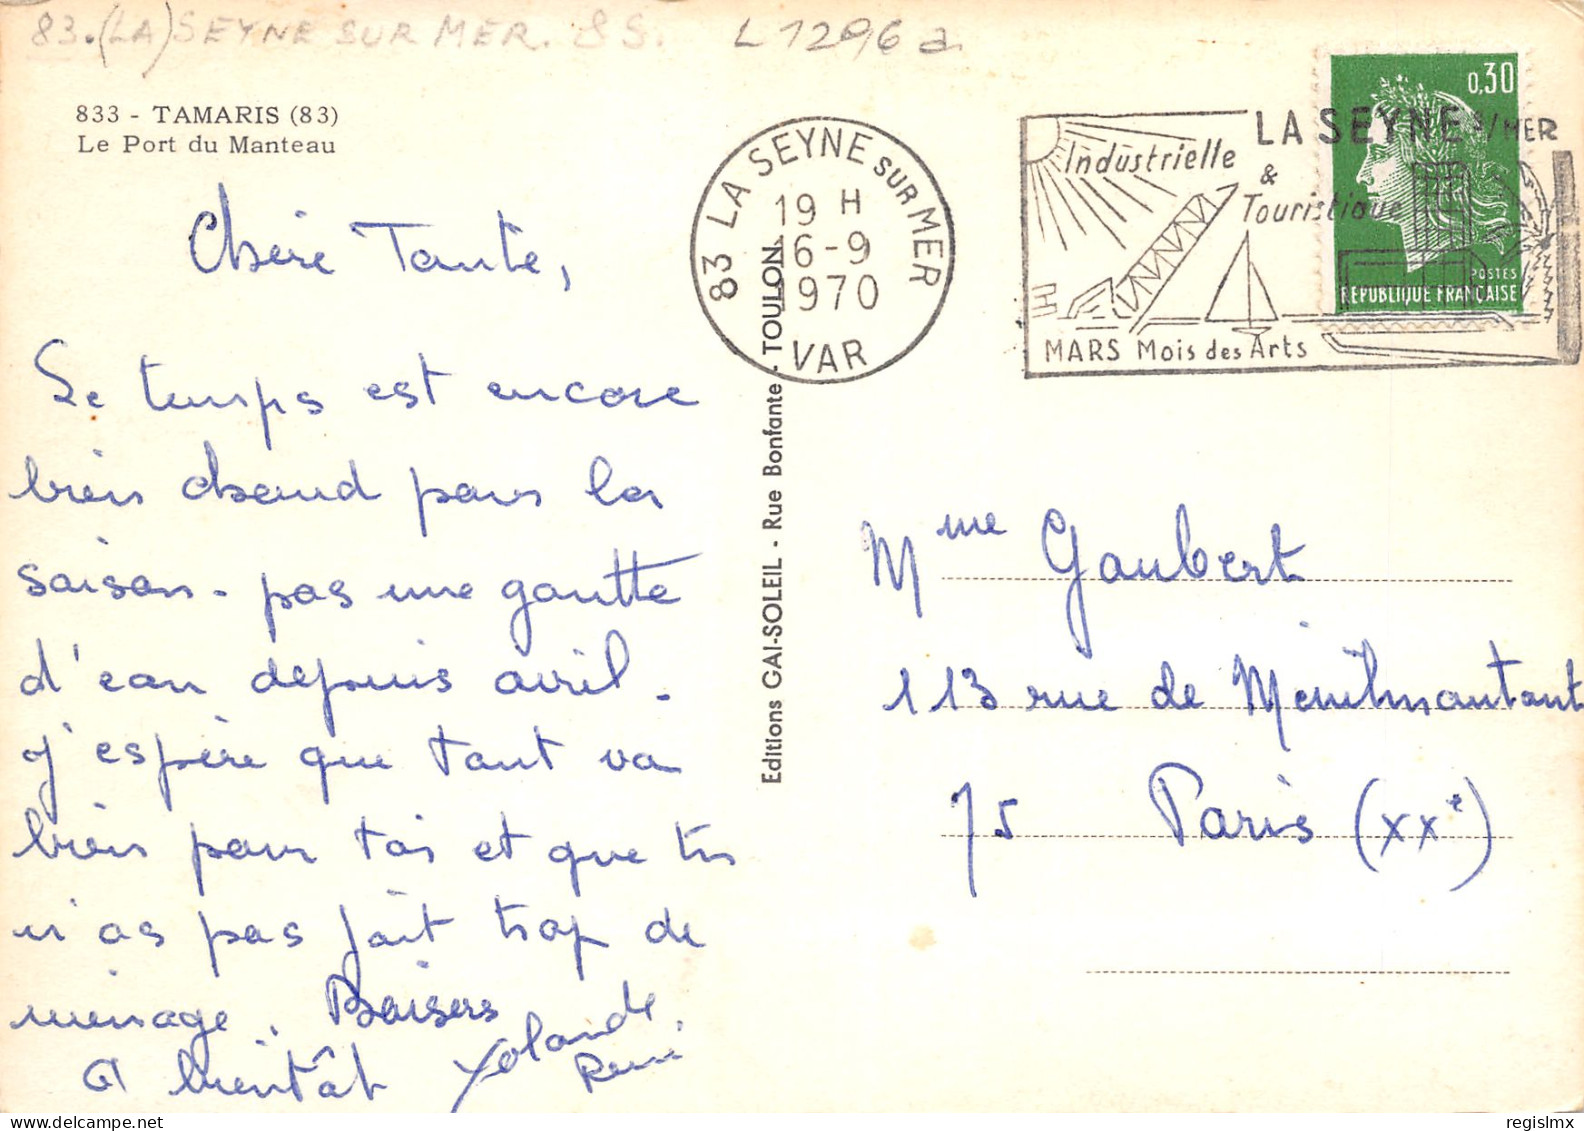 83.(LA)SEYNE SUR MER. 8S. L1296a
833 - TAMARIS (83)
Le Port du Manteau
83 LA SEYNE SUR MER
19 H
16-9
1970
VAR
LA SEYNE S/MER
Industrielle
&
Touristique
MARS Mois des Arts
0,30
POSTES
REPUBLIQUE FRANÇAISE
Chère Tante,
Le temps est encore
bien chaud pour la
saison - pas une goutte
d'eau depuis avril.
J'espère que tout va
bien pour toi et que tu
n'as pas fait trop de
ménage. Baisers
A bientôt Yolande
René
Editions GAI-SOLEIL - Rue Bonfante - TOULON
Mme Gaubert
113 rue de Ménilmontant
75 Paris (XXe)
delcampe.net
regislmx